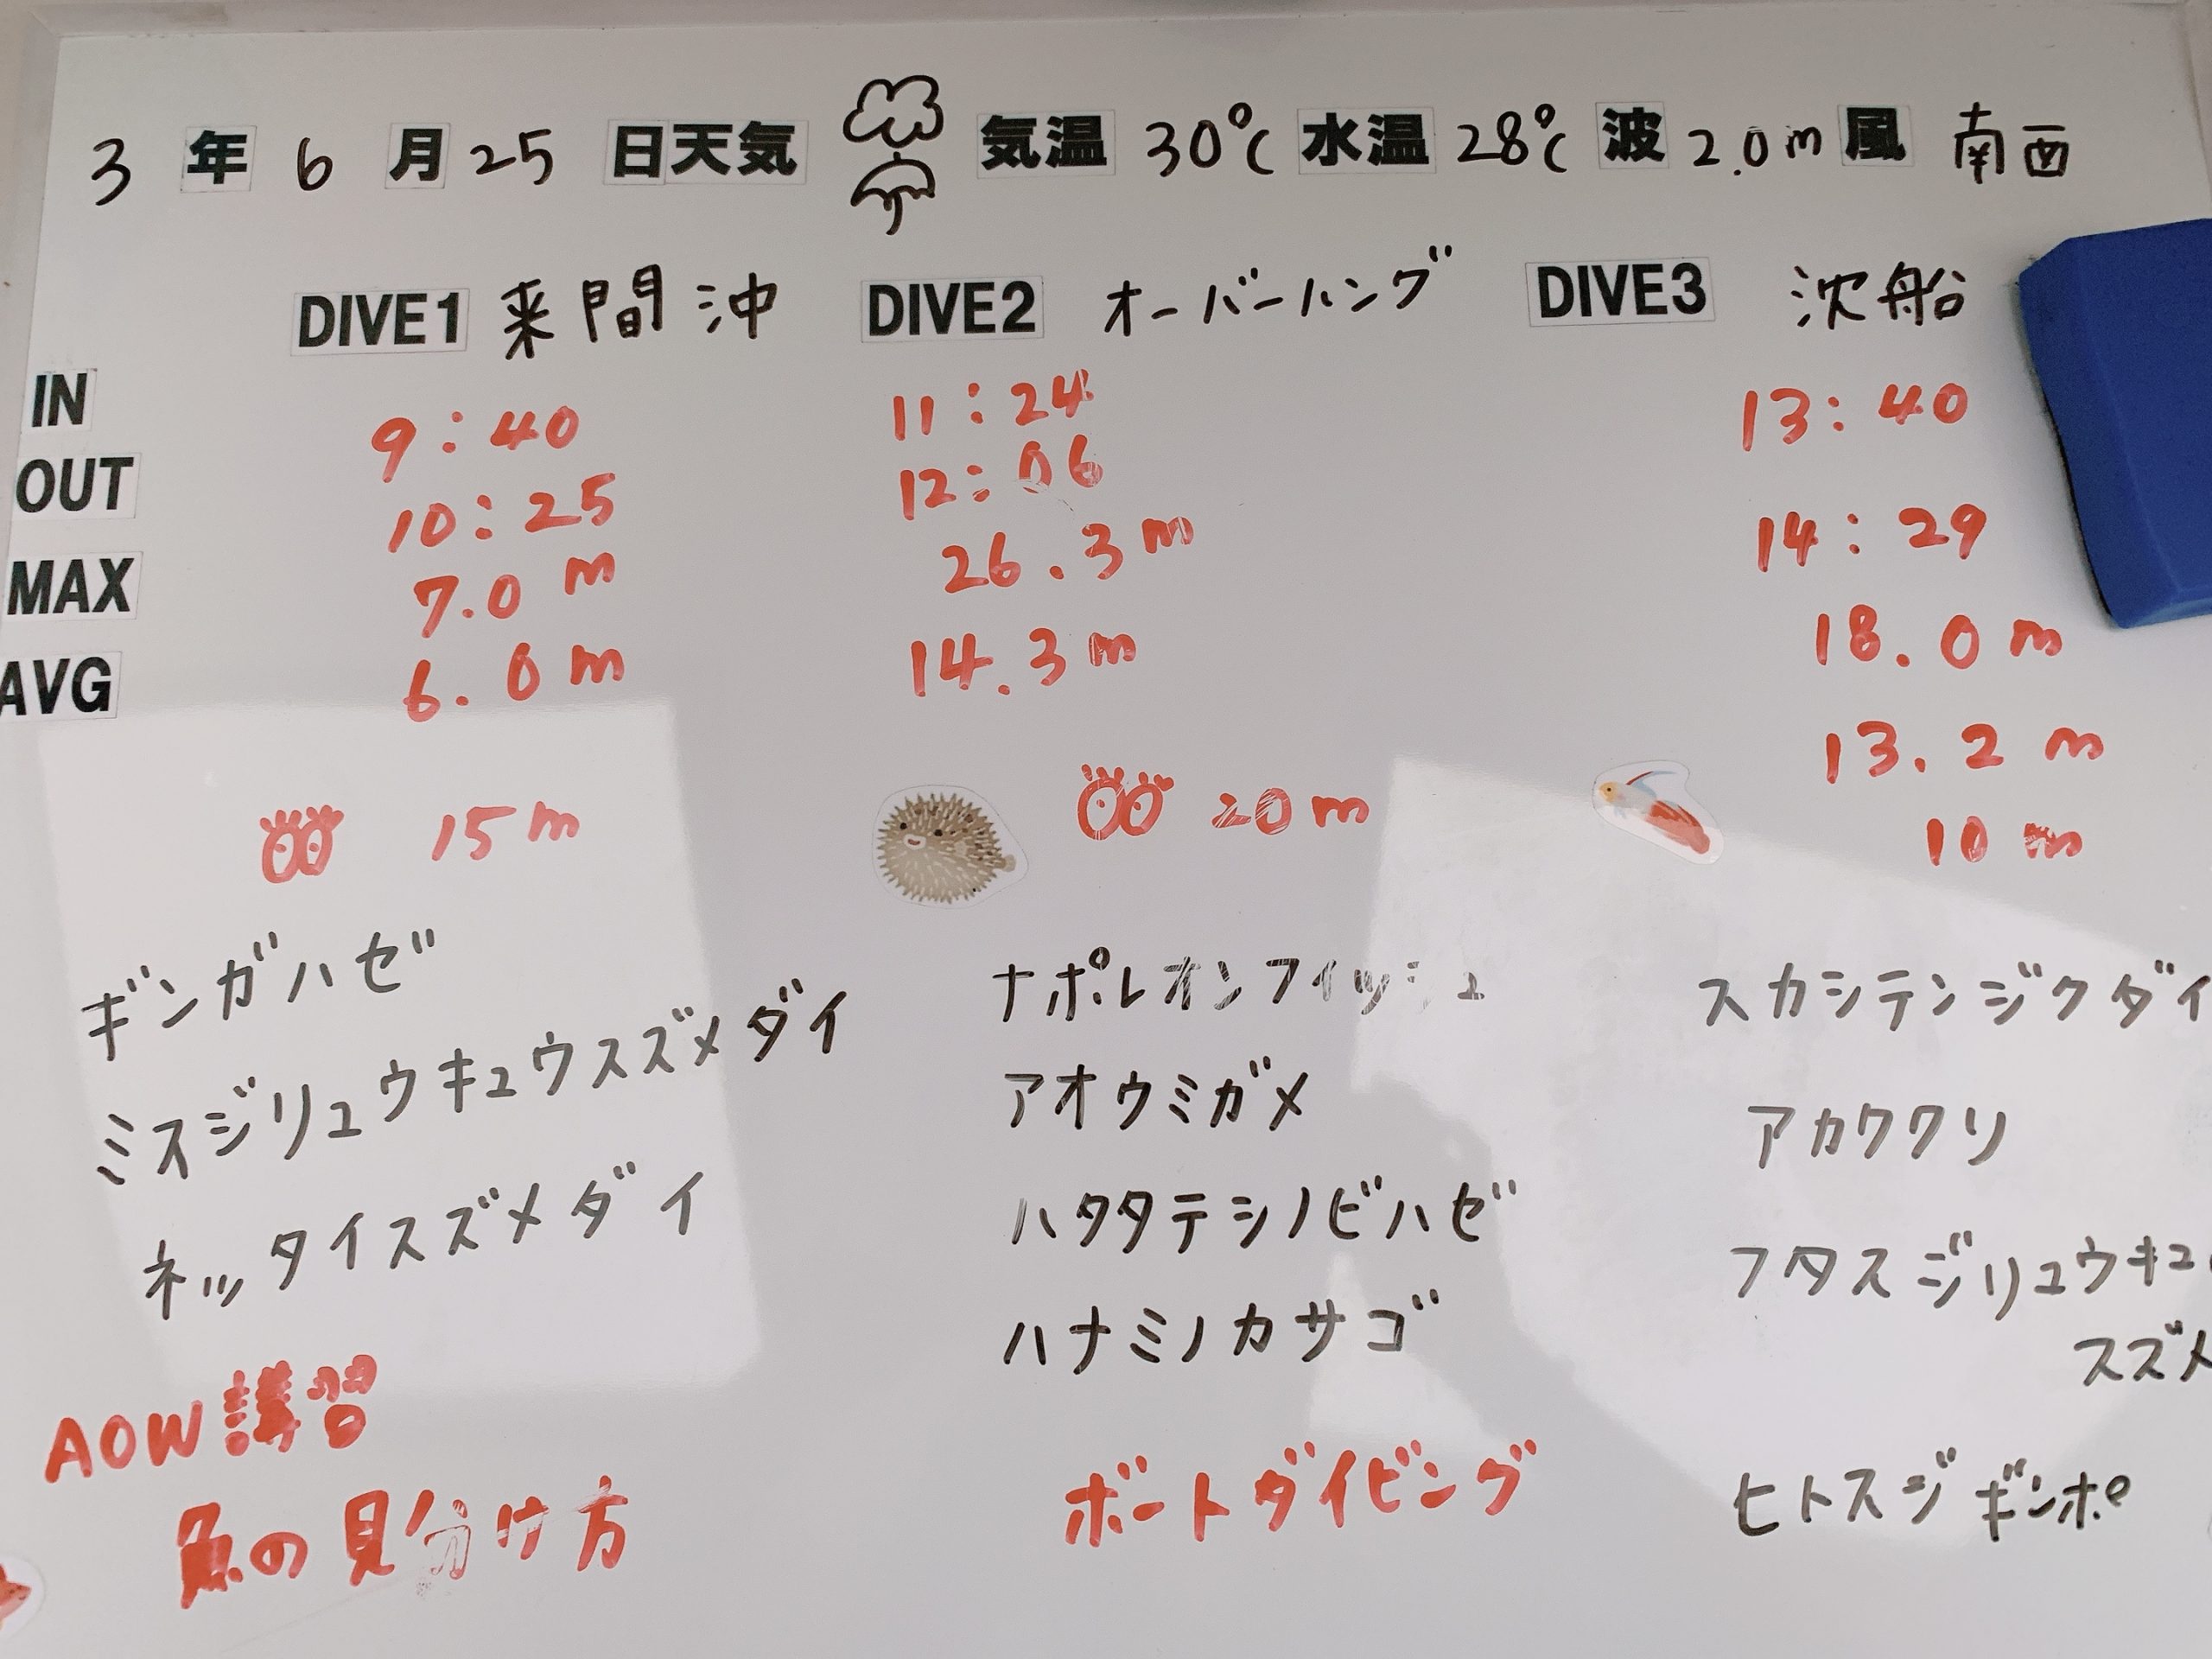 3年6月25日天気 気温30℃水温28℃波2.0m風南西
DIVE1 来間沖
DIVE2 オーバーハング
DIVE3 沈船
IN 9:40 11:24 13:40
OUT 10:25 12:06 14:29
MAX 7.0m 26.3m 18.0m
AVG 6.0m 14.3m 13.2m
15m 20m 10m
ギンガハゼ
ミスジリュウキュウスズメダイ
ネッタイスズメダイ
AOW講習
魚の見分け方
ナポレオンフィッシュ
アオウミガメ
ハタタテシノビハゼ
ハナミノカサゴ
ボートダイビング
スカシテンジクダイ
アカククリ
フタスジリュウキュ
スズメ
ヒトスジギンポ